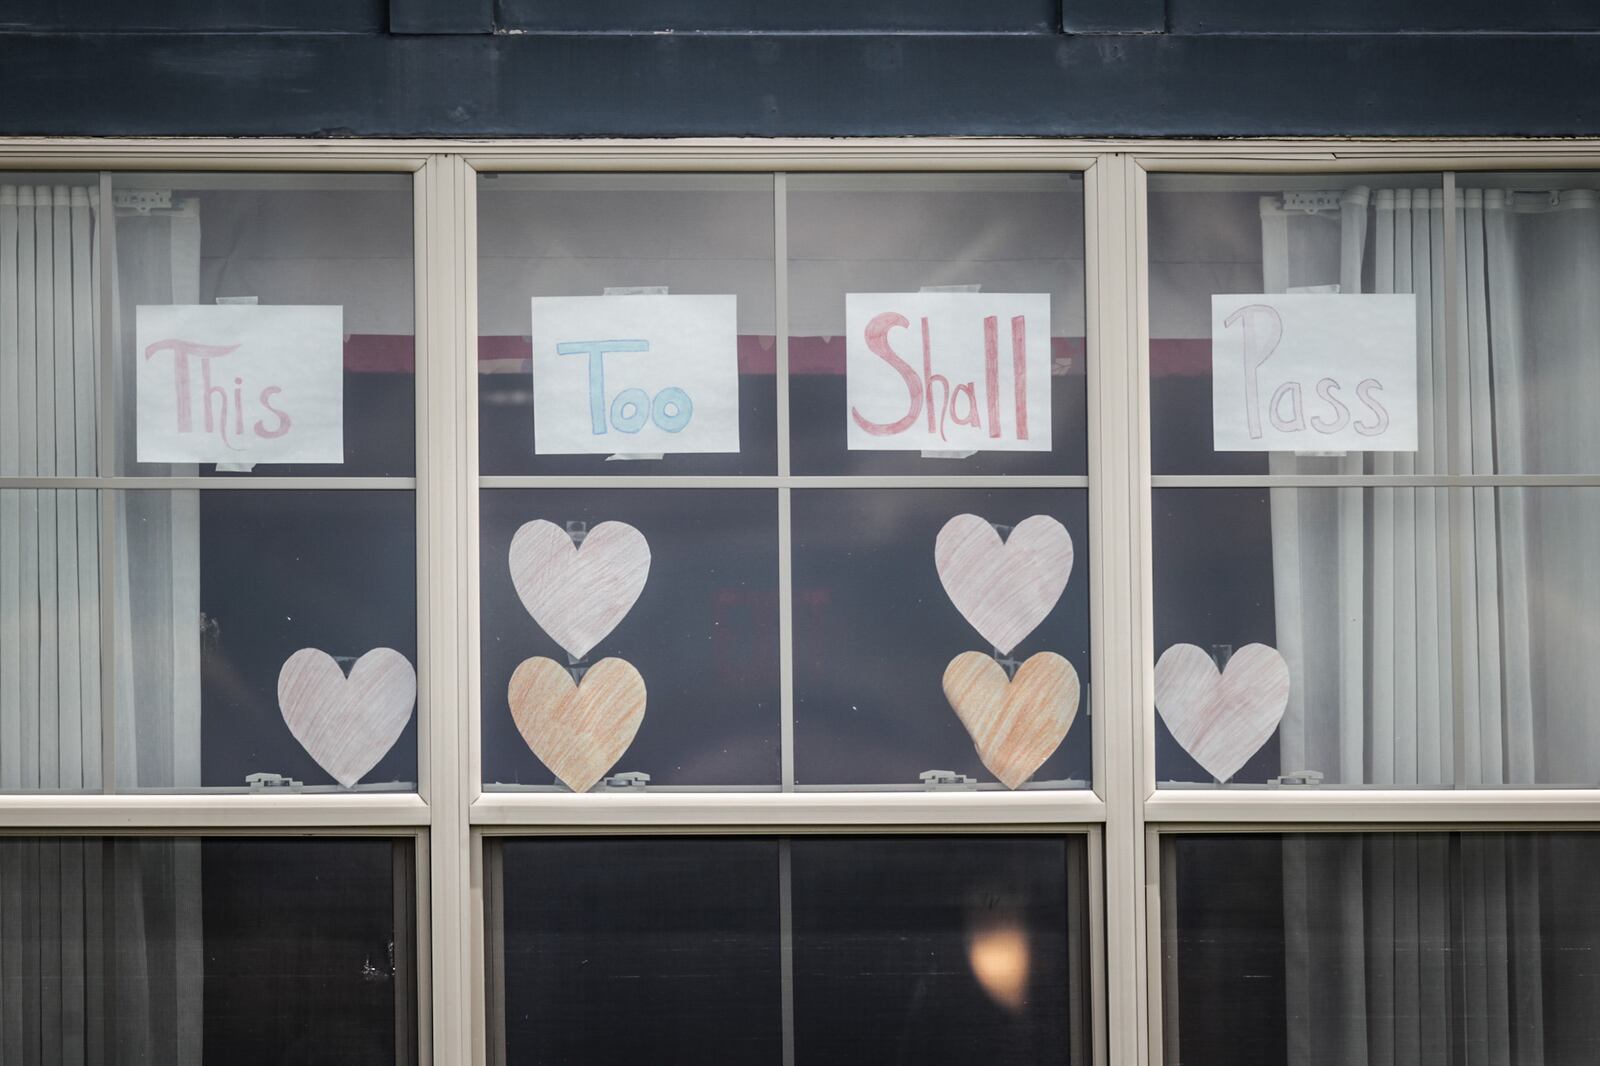 This
Too
Shall
Pass